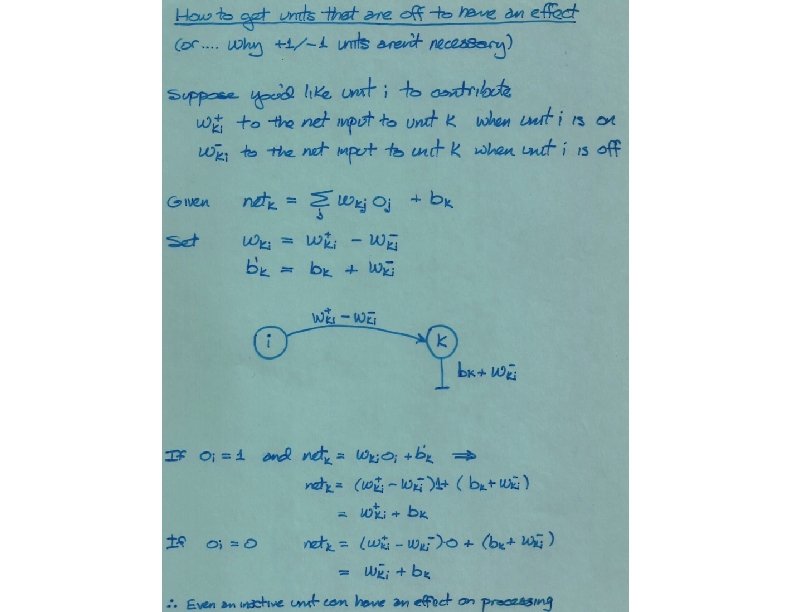 How to get units that are off to have an effect
(or.... why +1/-1 units aren't necessary)
Suppose you'd like unit i to contribute
w⁺ₖᵢ to the net input to unit k when unit i is on
w⁻ₖᵢ to the net input to unit k when unit i is off
Given netₖ = Σⱼ wₖⱼ oⱼ + bₖ
Set wₖᵢ = w⁺ₖᵢ - w⁻ₖᵢ
b'ₖ = bₖ + w⁻ₖᵢ
w⁺ₖᵢ - w⁻ₖᵢ
i k
bₖ + w⁻ₖᵢ
If oᵢ = 1 and netₖ = wₖᵢoᵢ + b'ₖ ⇒
netₖ = (w⁺ₖᵢ - w⁻ₖᵢ)1 + (bₖ + w⁻ₖᵢ)
= w⁺ₖᵢ + bₖ
If oᵢ = 0 netₖ = (w⁺ₖᵢ - wₖᵢ⁻)0 + (bₖ + w⁻ₖᵢ)
= w⁻ₖᵢ + bₖ
∴ Even an inactive unit can have an effect on processing